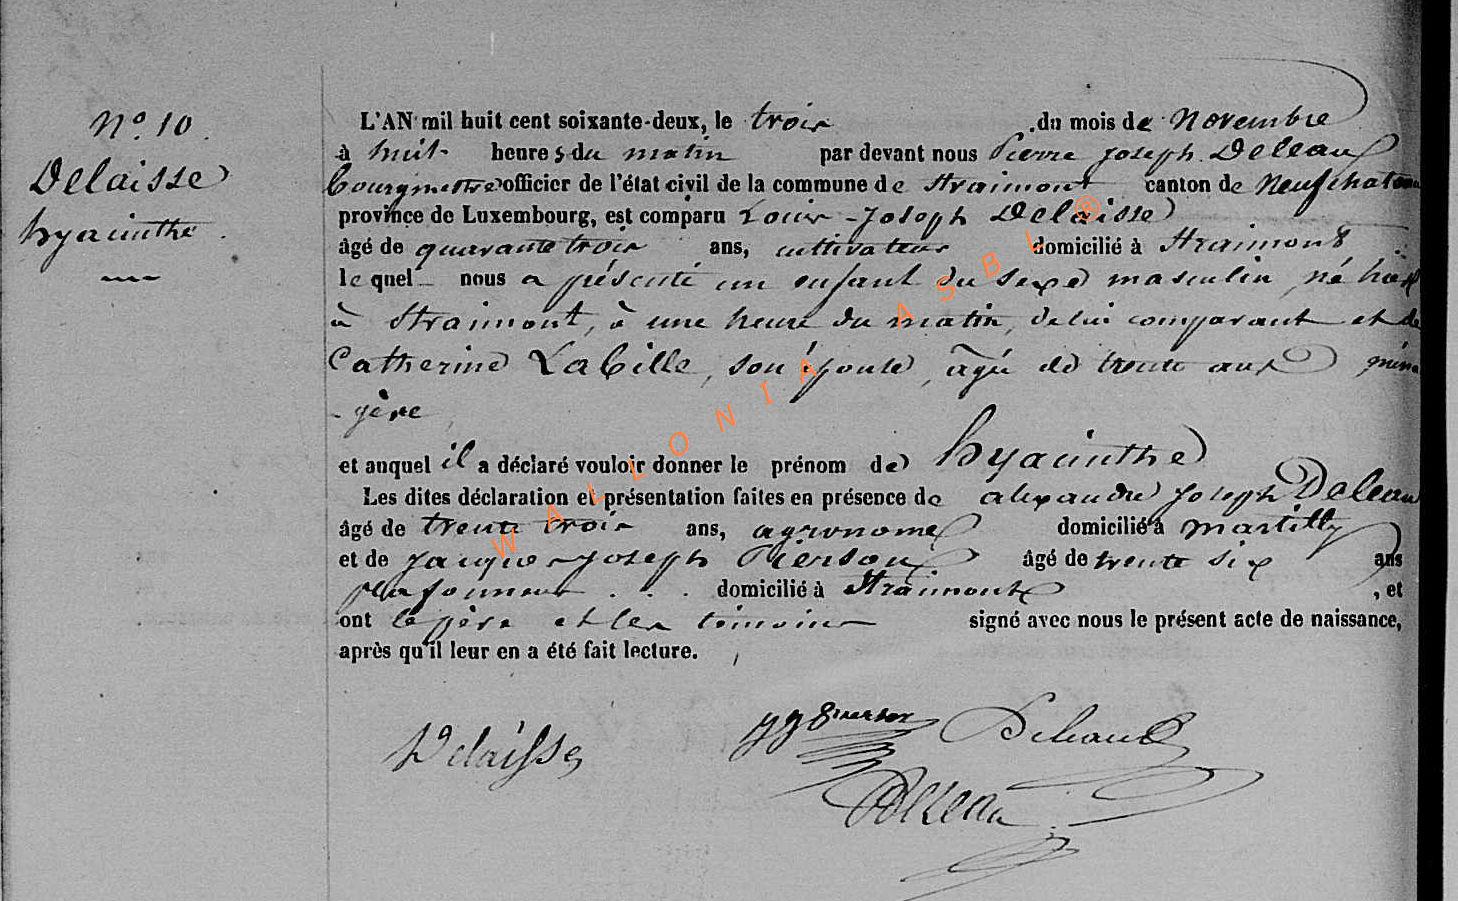 N.o 10.
Delaisse
hyacinthe.
L'AN mil huit cent soixante-deux, le trois du mois de Novembre
à huit heures du matin par devant nous Pierre Joseph Deleau
bourgmestre officier de l'état civil de la commune de Straimont canton de Neufchateau
province de Luxembourg, est comparu Louis-Joseph Delaisse
âgé de quarante trois ans, cultivateur domicilié à Straimont
lequel nous a présenté un enfant du sexe masculin, né
à Straimont, à une heure du matin, de lui comparant et de
Catherine Labille, son épouse, âgée de trente ans, ména
-gère
et auquel il a déclaré vouloir donner le prénom de hyacinthe
Les dites déclaration et présentation faites en présence de alexandre Joseph Deleau
âgé de trente trois ans, agronome domicilié à martilly
et de Jacques-Joseph Pierson âgé de trente six ans
plafonneur . . . domicilié à Straimont, et
ont le père et les témoins signé avec nous le présent acte de naissance,
après qu'il leur en a été fait lecture.
Delaisse JJ Pierson Deleau
Deleau
WALLONIA ASBL ®